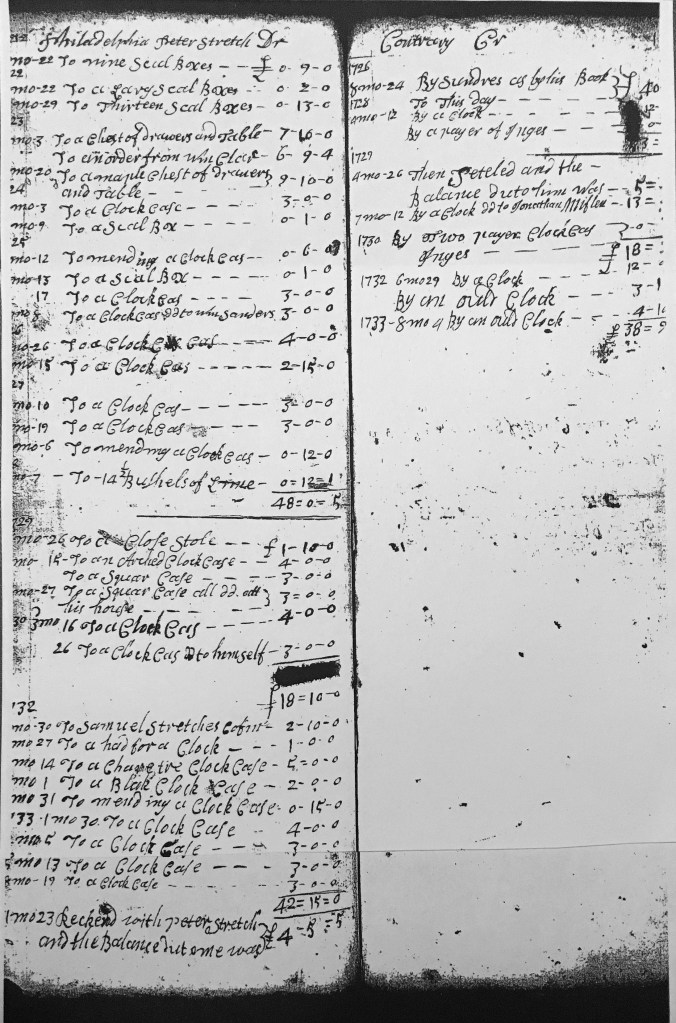 Philadelphia Peter Stretch Dr
mo-22 To nine Scal Boxes - - £ 0-9-0
22
mo-22 To a Larg Scal Boxes - - 0-2-0
mo-29 To Thirteen Scal Boxes - 0-13-0
23
mo-3 To a Chest of drawers and Table - 7-16-0
To an order from wm Clar - 6-9-4
mo-20 To a maple Chest of drawers
and Table - - } 9-10-0
24
mo-3 To a Clock Case - - 3-0-0
mo-9 To a Scal Box - - 0-1-0
25
mo-12 To mending a Clock Cas - - 0-6-0
mo-13 To a Scal Box - - 0-1-0
17 To a Clock Cas - - 3-0-0
mo To a Clock Cas dd to wm Sanders 3-0-0
mo-26 To a Clock Cas - - - - 4-0-0
mo-15 To a Clock Cas - - - - - 2-15-0
27
mo-10 To a Clock Cas - - - - 3-0-0
mo-19 To a Clock Cas - - - - 3-0-0
mo-6 To mending a Clock Cas - - 0-12-0
mo-7 - To -14 ½ Bushels of Lime - 0=12=1
48=0=5
729
mo-26 To a Close Stole - - £ 1-10-0
mo- 15-To an Arched Clock Case - - 4-0-0
To a Squar Case - - - - 3-0-0
mo-27 To a Squar Case dd att
his house - - - - } 3=0=0
30 3mo 16 To a Clock Cas - - - 4-0-0
26 To a Clock Cas to himself - 3-0-0
£ 18=10-0
132
mo-30 To Samuel Stretches Cofin - 2-10-0
mo 27 To a had for a Clock - - 1-0-0
mo 14 To a Clock Case - 5=0=0
mo 1 To a Blak Clock Case - 2-0-0
mo 31 To mending a Clock Case - 0-15-0
133-1mo 30 To a Clock Case 4-0-0
mo 5 To a Clock Case - - - 3-0-0
mo 13 To a Clock Case - - - 3-0-0
8mo-19 To a Clock Case - - - - 3-0-0
42=15=0
1mo 23 Reckend with Peter Stretch
and the Balance du to me was } £ 4-5=5
Contrary Cr
1726
8mo-24 By Sundres as by his Book
1728 To This day - - - - } £ 40
9mo-12 By a Clock - - - 12-
By a payer of Inges - - - 0-
1729
4mo-26 Then Seteled and the -
Balance du to him was - 5=
7mo-12 By a Clock dd to Jonathan Miflen - 13=
1730 By Two payer Clock Cas
Inges - - - - } -0-
£ 18=
1732 6mo 29 By a Clock - - - 12-0-
By an ould Clock - - - 3-1
1733-8mo 4 By an ould Clock - - - 4-10
£ 38=9